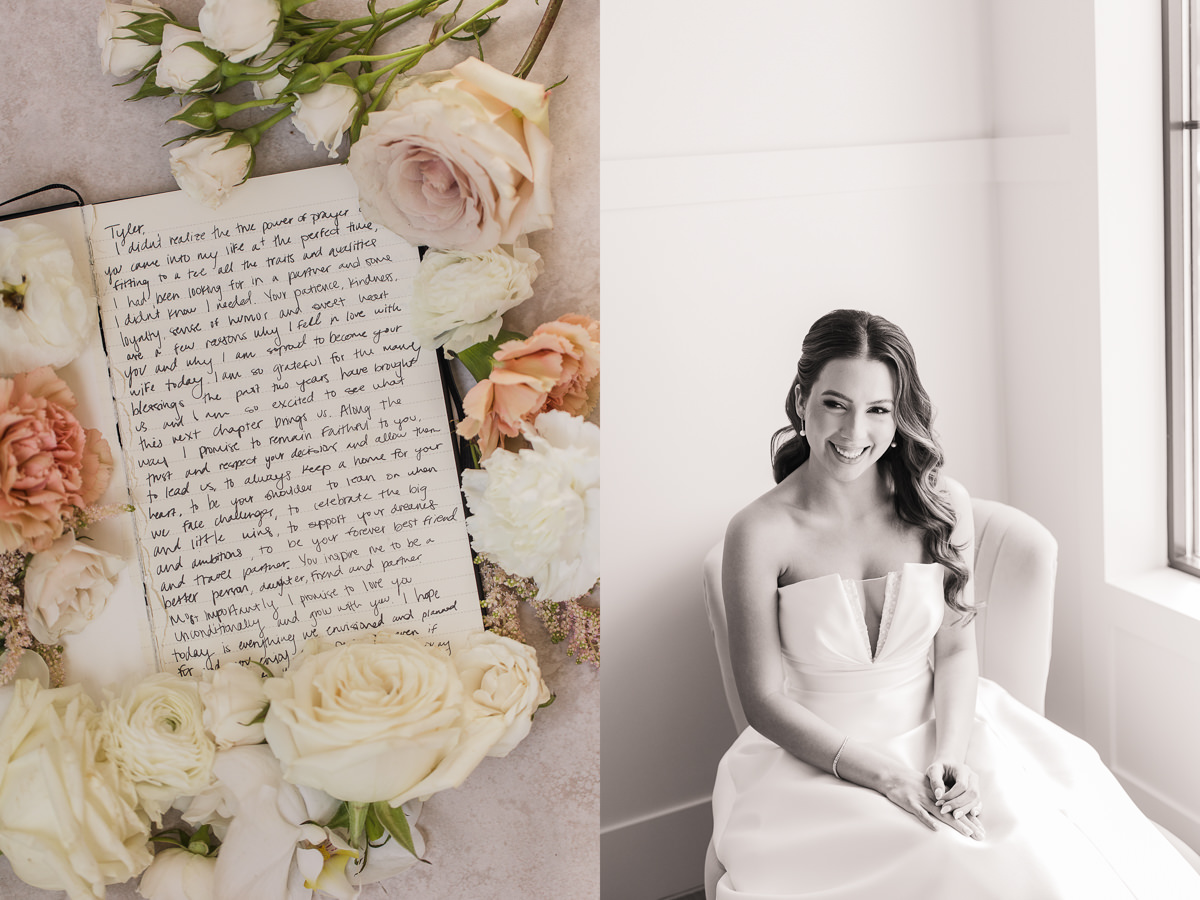 Tyler,
I didn't realize the true power of prayer
you came into my life at the perfect time,
fitting to a tee all the traits and qualities
I had been looking for in a partner and some
I didn't know I needed. Your patience, kindness,
loyalty, sense of humor and sweet heart
are a few reasons why I fell in love with
you and why I am so proud to become your
wife today. I am so grateful for the many
blessings the past two years have brought
us and I am so excited to see what
this next chapter brings us. Along the
way I promise to remain faithful to you,
trust and respect your decisions and allow them
to lead us, to always keep a home for your
heart, to be your shoulder to lean on when
we face challenges, to celebrate the big
and little wins, to support your dreams
and ambitions, to be your forever best friend
and travel partner. You inspire me to be a
better person, daughter, friend and partner.
Most importantly I promise to love you
unconditionally and grow with you. I hope
today is everything we envisioned and planned
for and you enjoy even if